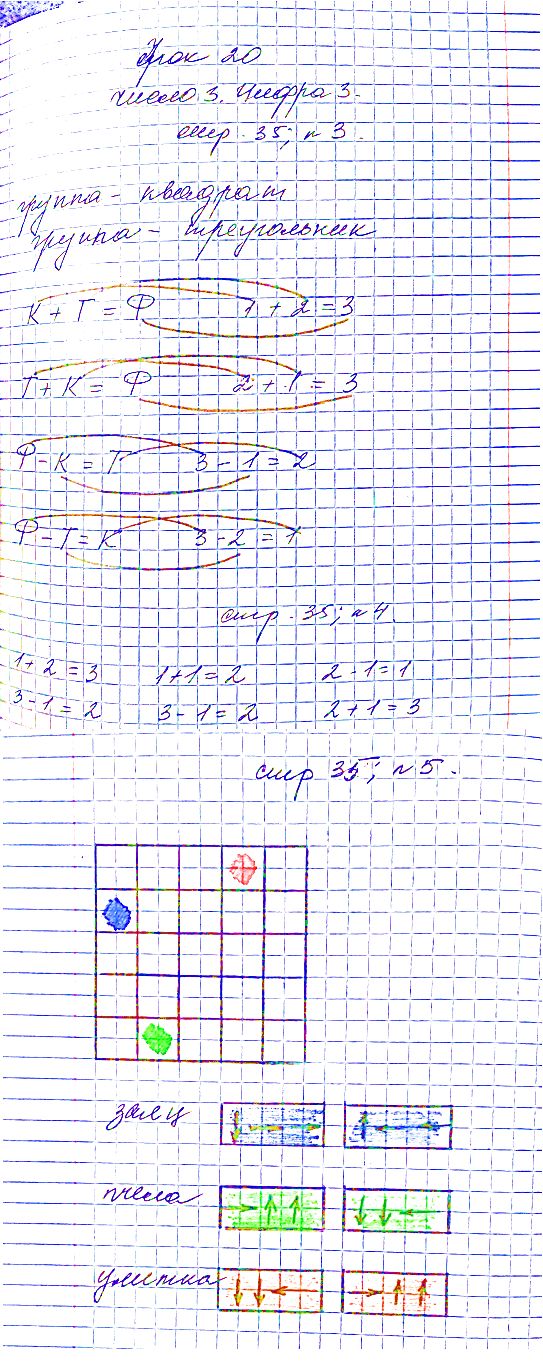 Урок 20
число 3. Цифра 3.
стр. 35; n 3.
группа - квадрат
группа - треугольник
К + Т = Ф 1 + 2 = 3
Т + К = Ф 2 + 1 = 3
Ф - К = Т 3 - 1 = 2
Ф - Т = К 3 - 2 = 1
стр. 35; n 4.
1 + 2 = 3 1 + 1 = 2 2 - 1 = 1
3 - 1 = 2 3 - 1 = 2 2 + 1 = 3
стр 35; n 5.
заяц
пчела
улитка